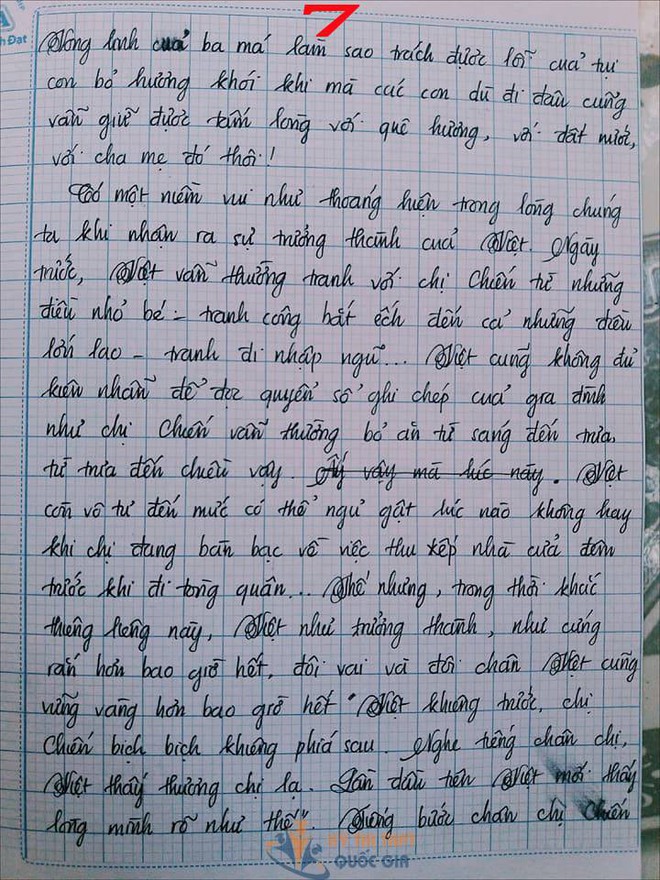 7
h Đạt
Vong linh của ba má làm sao trách được lỗi của tụi
con bỏ hương khói khi mà các con dù đi đâu cũng
vẫn giữ được tấm lòng với quê hương, với đất nước,
với cha mẹ đó thôi!
Có một niềm vui như thoáng hiện trong lòng chúng
ta khi nhận ra sự trưởng thành của Việt. Ngày
trước, Việt vẫn thường tranh với chị Chiến từ những
điều nhỏ bé - tranh công bắt ếch đến cả những điều
lớn lao - tranh đi nhập ngũ... Việt cũng không đủ
kiên nhẫn để đọc quyển sổ ghi chép của gia đình
như chị Chiến vẫn thường bỏ ăn từ sáng đến trưa,
từ trưa đến chiều vậy. Ấy vậy mà lúc này. Việt
còn vô tư đến mức có thể ngủ gật lúc nào không hay
khi chị đang bàn bạc về việc thu xếp nhà cửa đêm
trước khi đi tòng quân... Thế nhưng, trong thời khắc
thiêng liêng này, Việt như trưởng thành, như cứng
rắn hơn bao giờ hết, đôi vai và đôi chân Việt cũng
vững vàng hơn bao giờ hết "Việt khiêng trước, chị
Chiến bịch bịch khiêng phía sau. Nghe tiếng chân chị,
Việt thấy thương chị lạ. Lần đầu tiên Việt mới thấy
lòng mình rõ như thế". Tiếng bước chân chị Chiến
KỲ THI THPT
QUỐC GIA